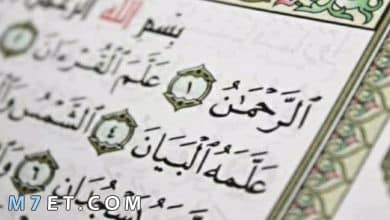 بِسْمِ ٱللَّهِ ٱلرَّحْمَٰنِ
ٱلرَّحْمَٰنُ ١ عَلَّمَ ٱلْقُرْءَانَ ٢
عَلَّمَهُ ٱلْبَيَانَ ٤ ٱلشَّمْسُ
٦
M7ET.COM